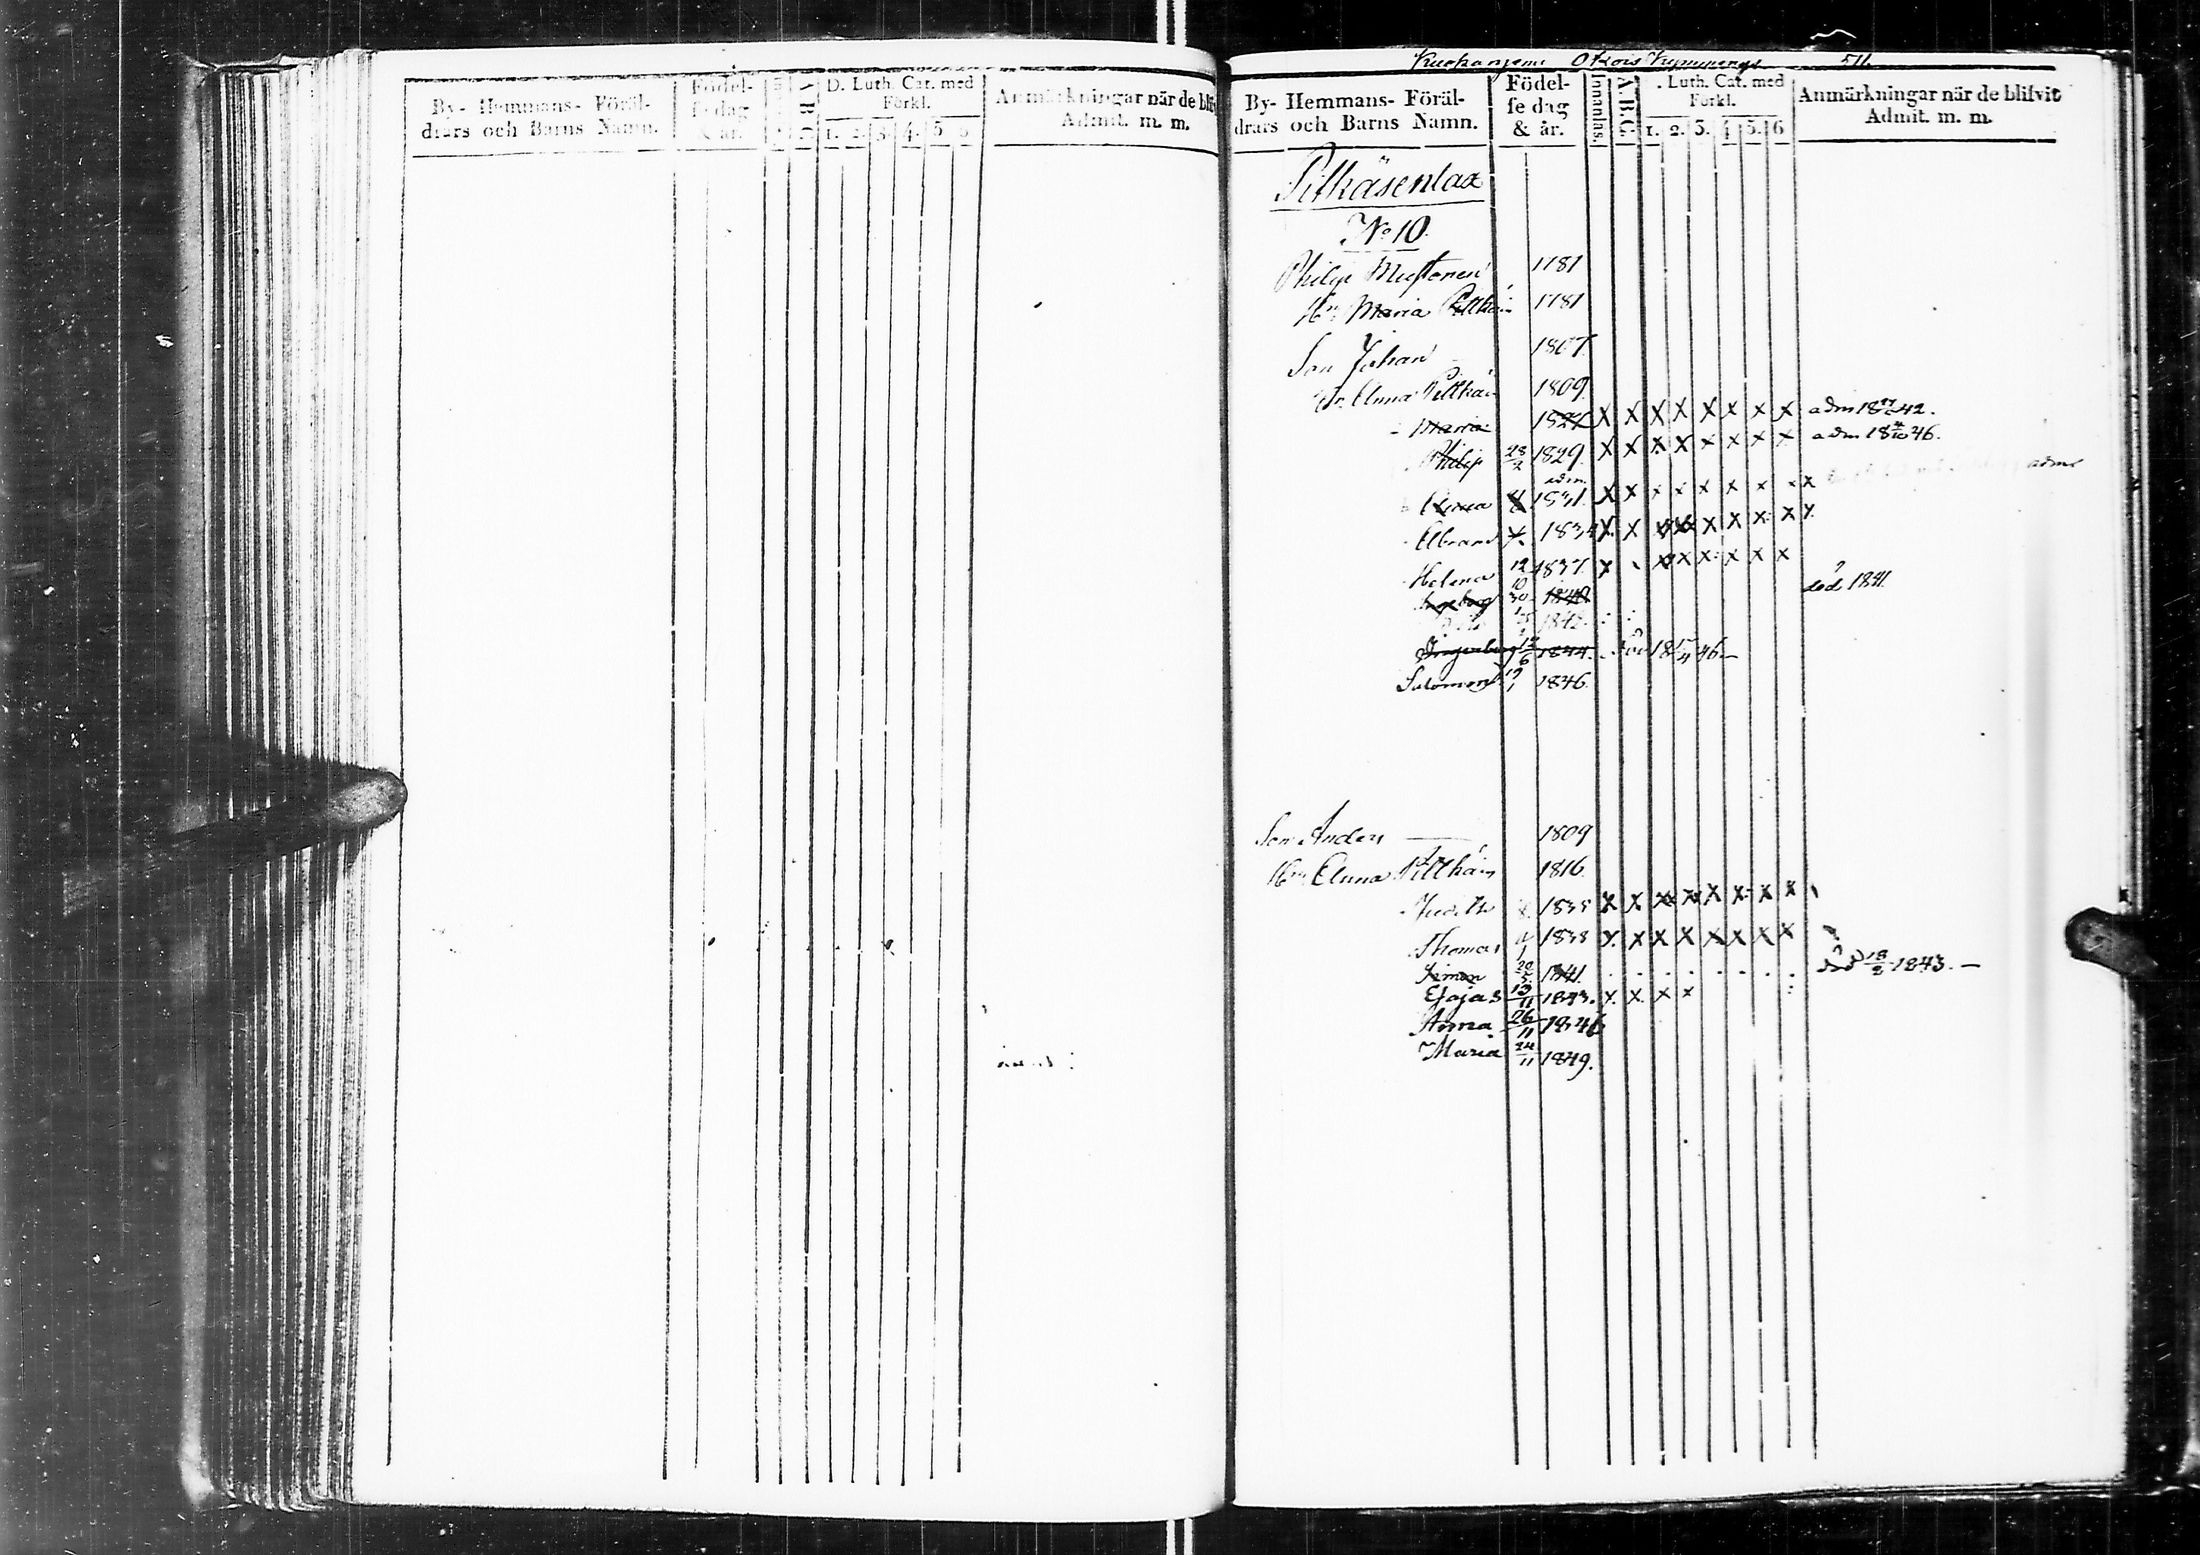 By- Hemmans- Föräl-
drars och Barns Namn.
Födel-
se dag
& år.
A B C
D. Luth. Cat. med
Förkl.
1. 2. 3. 4. 5. 6
Anmärkningar när de blif
Admit. m. m.
511.
By- Hemmans- Föräl-
drars och Barns Namn.
Födel-
se dag
& år.
Innanläs.
A.B.C.
. Luth. Cat. med
Förkl.
1. 2. 3. 4. 5. 6
Anmärkningar när de blifvit
Admit. m. m.
Pitkäsenlax
No 10.
Philip Mustonen 1781
Hu Maria 1781
Son Johan 1807.
Hu Anna 1809.
- Maria 1824 X X X X X X X X adm 18 42.
Philip 28/2 1829. X X X X X X X X adm 18 4/10 46.
adm
Anna 1831. X X X X X X X X X
Abram 1834 X X X X X X X X
Helena 12/10 1837. X X X X X X X
Ingeborg 30 1840 död 1841.
1842.
Ingeborg 12/6 1844. död 18 46 -
Salomon 1846.
Son Anders 1809
Hu Anna 1816.
Judith 1835 X X X X X X X X
Thomas 1838 X X X X X X X X
Simon 20/5 1841. död 18/2 1843. -
Esajas 13/11 1843. X X X X
Anna 26/11 1846
Maria 24/11 1849.